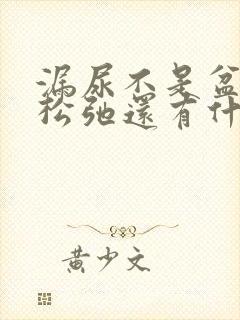 漏尿不是盆
松弛還有什
黄少文